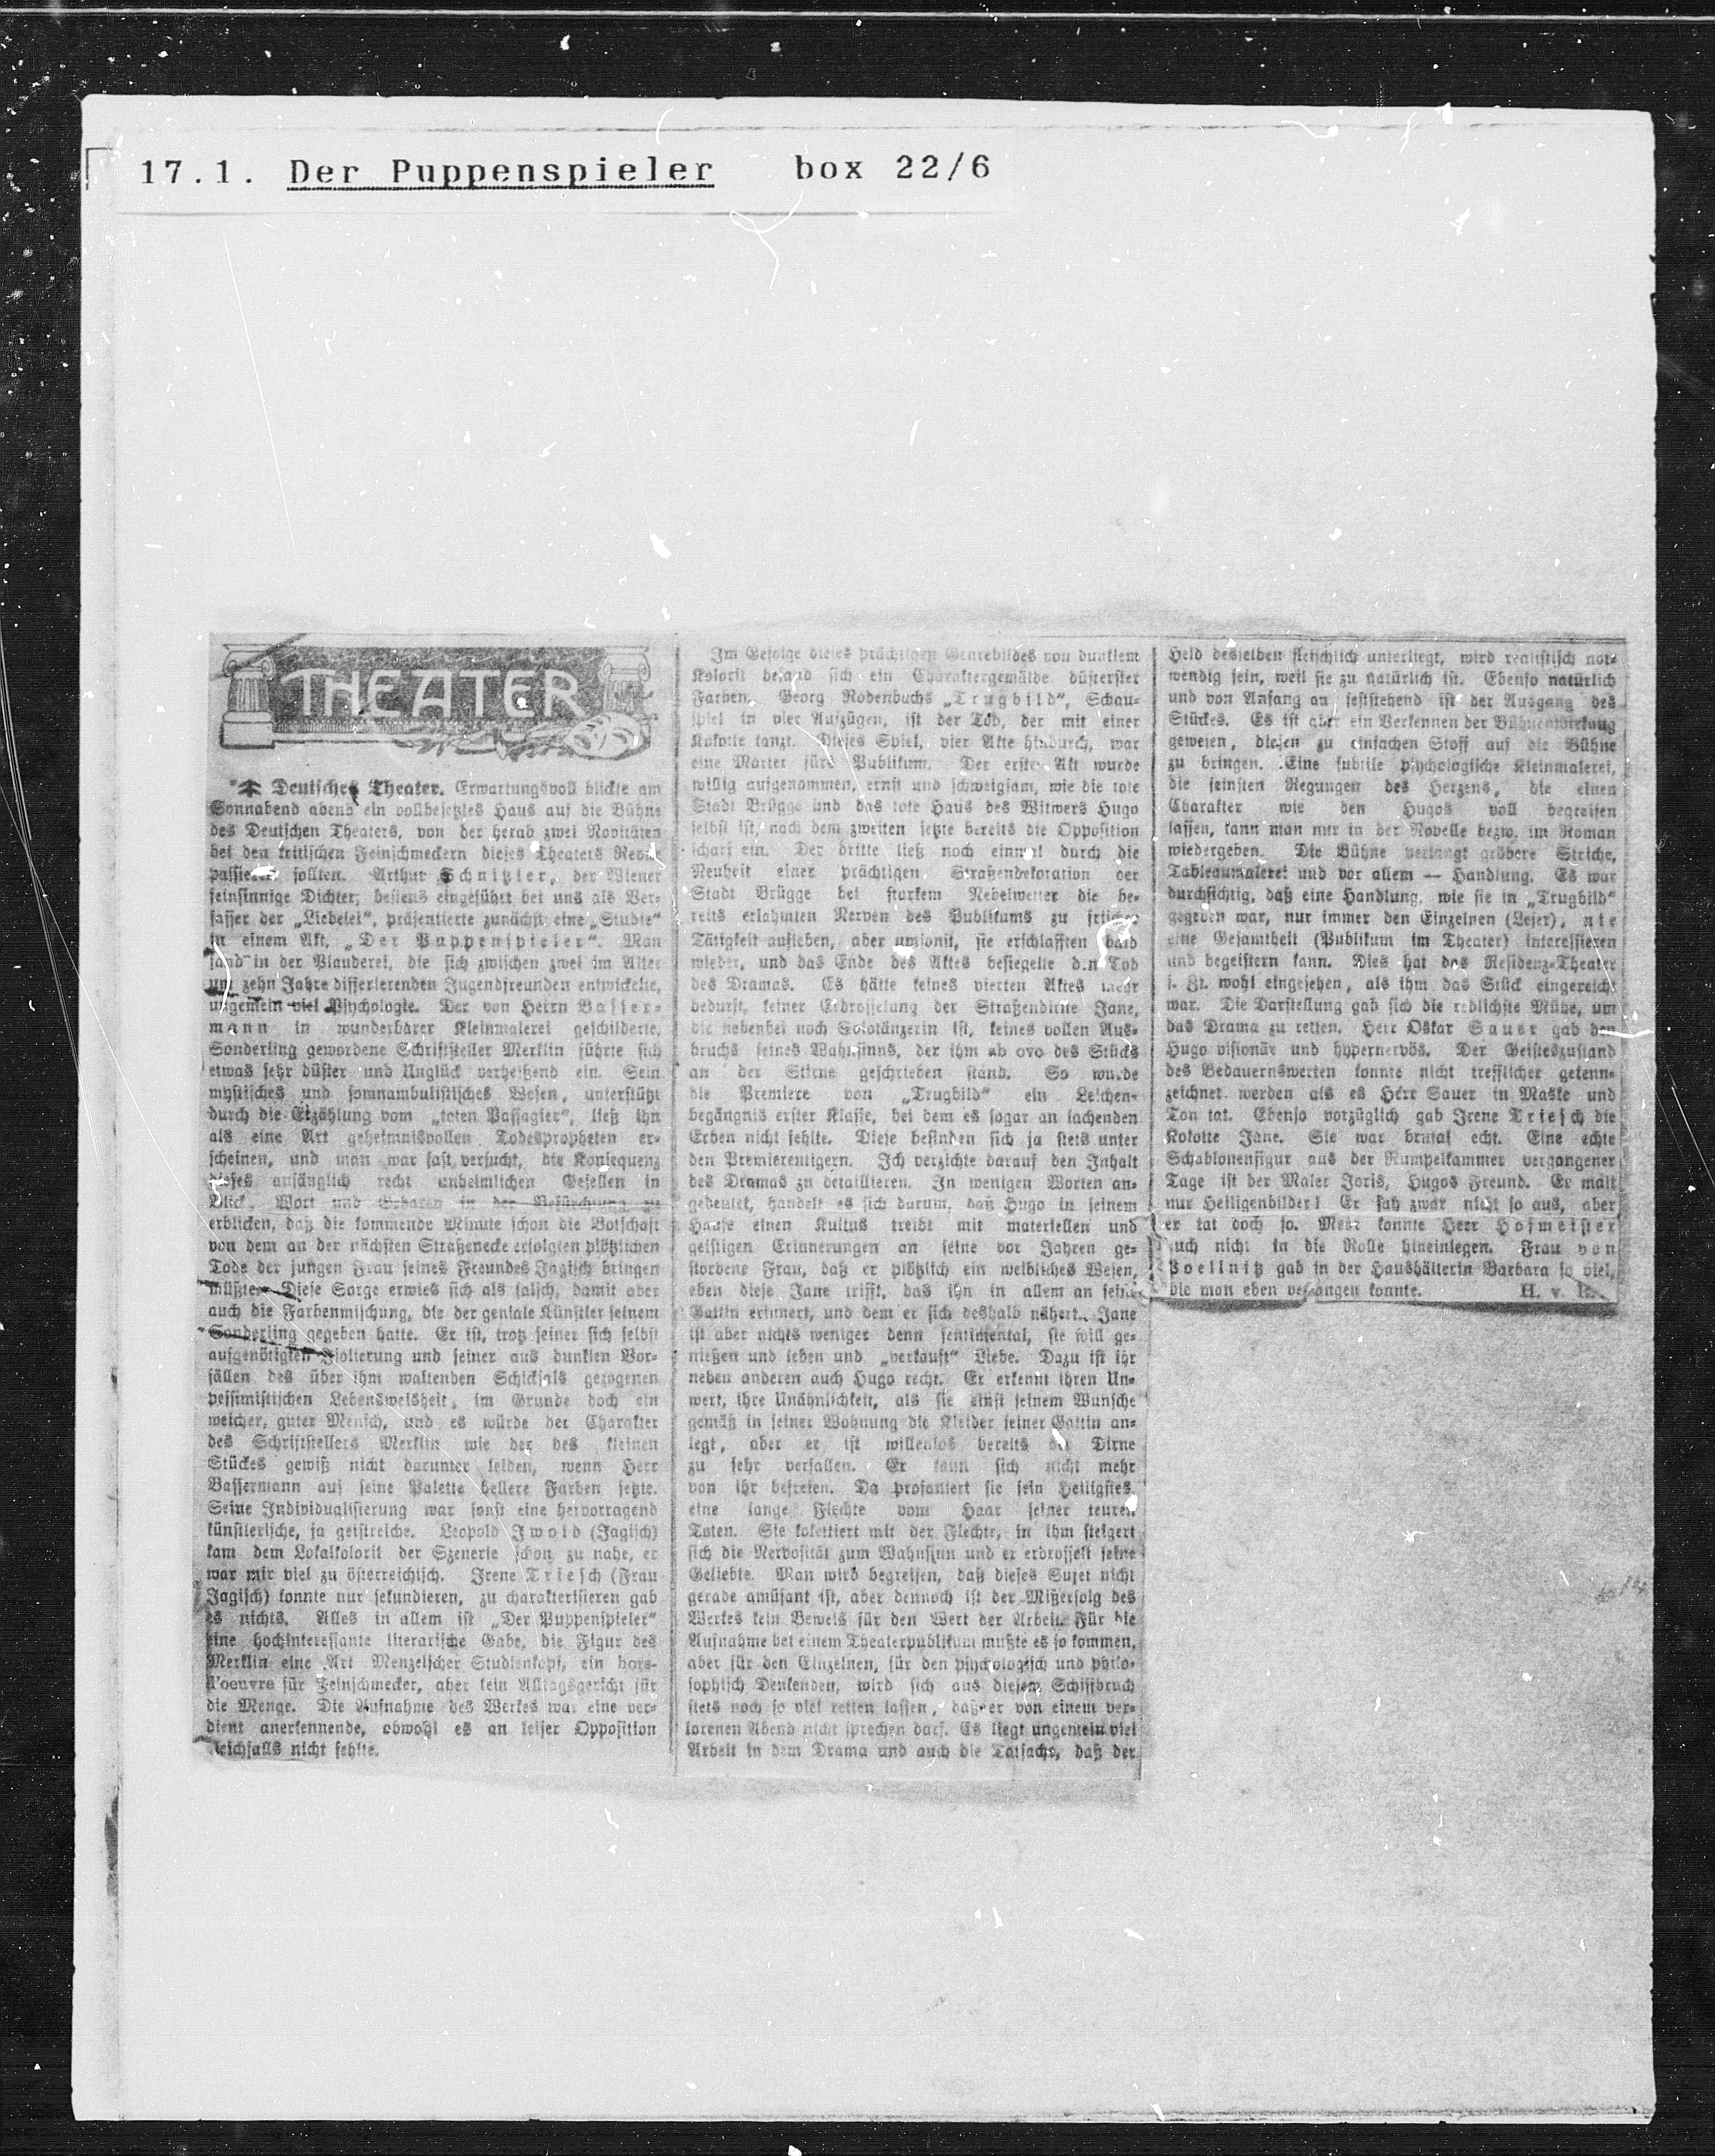 17.1. Der Puppenspieler box 22/6
THEATER
Deutsches Theater. Erwartungsvoll blickte am
Sonnabend abend ein vollbesetztes Haus auf die Bühne
des Deutschen Theaters, von der herab zwei Novitäten
bei den kritischen Feinschmeckern dieses Theaters Revue
passieren sollten. Arthur Schnitzler, der Wiener
feinsinnige Dichter, bestens eingeführt bei uns als Ver-
fasser der „Liebelei“, präsentierte zunächst eine „Studie“
in einem Akt, „Der Puppenspieler“. Man
fand in der Plauderei, die sich zwischen zwei im Alter
um zehn Jahre differierenden Jugendfreunden entwickelte,
ungemein viel Psychologie. Der von Herrn Basser-
mann in wunderbarer Kleinmalerei geschilderte,
Sonderling gewordene Schriftsteller Merklin führte sich
etwas sehr düster und Unglück verheißend ein. Sein
mystisches und somnambulistisches Wesen, unterstützt
durch die Erzählung vom „toten Passagier“, ließ ihn
als eine Art geheimnisvollen Todespropheten er-
scheinen, und man war fast versucht, die Konsequenz
dieses anfänglich recht unheimlichen Gesellen in
Blick, Wort und Gebaren in der Befürchtung zu
erblicken, daß die kommende Minute schon die Botschaft
von dem an der nächsten Straßenecke erfolgten plötzlichen
Tode der jungen Frau seines Freundes Jagisch bringen
müßte. Diese Sorge erwies sich als falsch, damit aber
auch die Farbenmischung, die der geniale Künstler seinem
Sonderling gegeben hatte. Er ist, trotz seiner sich selbst
aufgenötigten Isolierung und seiner aus dunklen Vor-
fällen des über ihm waltenden Schicksals gezogenen
pessimistischen Lebensweisheit, im Grunde doch ein
weicher, guter Mensch, und es würde der Charakter
des Schriftstellers Merklin wie der des kleinen
Stückes gewiß nicht darunter leiden, wenn Herr
Bassermann auf seine Palette hellere Farben setzte.
Seine Individualisierung war sonst eine hervorragend
künstlerische, ja geistreiche. Leopold Iwold (Jagisch)
kam dem Lokalkolorit der Szenerie schon zu nahe, er
war mir viel zu österreichisch. Irene Triesch (Frau
Jagisch) konnte nur sekundieren, zu charakterisieren gab
es nichts. Alles in allem ist „Der Puppenspieler“
eine hochinteressante literarische Gabe, die Figur des
Merklin eine Art Menzelscher Studienkopf, ein hors-
d'oeuvre für Feinschmecker, aber kein Alltagsgericht für
die Menge. Die Aufnahme des Werkes war eine ver-
dient anerkennende, obwohl es an leiser Opposition
gleichfalls nicht fehlte.
Im Gefolge dieses prächtigen Genrebildes von dunklem
Kolorit befand sich ein Charaktergemälde düsterster
Farben. Georg Rodenbachs „Trugbild“, Schau-
spiel in vier Aufzügen, ist der Tod, der mit einer
Kokotte tanzt. Dieses Spiel, vier Akte hindurch, war
eine Marter fürs Publikum. Der erste Akt wurde
willig aufgenommen, ernst und schweigsam, wie die tote
Stadt Brügge und das tote Haus des Witwers Hugo
selbst ist, nach dem zweiten setzte bereits die Opposition
scharf ein. Der dritte ließ noch einmal durch die
Neuheit einer prächtigen Straßendekoration der
Stadt Brügge bei starkem Nebelwetter die be-
reits erlahmten Nerven des Publikums zu frischer
Tätigkeit aufleben, aber umsonst, sie erschlafften bald
wieder, und das Ende des Aktes besiegelte den Tod
des Dramas. Es hätte keines vierten Aktes mehr
bedurft, keiner Erdrosselung der Straßendirne Jane,
die nebenbei noch Solotänzerin ist, keines vollen Aus-
bruchs seines Wahnsinns, der ihm ab ovo des Stücks
an der Stirne geschrieben stand. So wurde
die Premiere von „Trugbild“ ein Leichen-
begängnis erster Klasse, bei dem es sogar an lachenden
Erben nicht fehlte. Diese befinden sich ja stets unter
den Premierentigern. Ich verzichte darauf den Inhalt
des Dramas zu detaillieren. In wenigen Worten an-
gedeutet, handelt es sich darum, daß Hugo in seinem
Hause einen Kultus treibt mit materiellen und
geistigen Erinnerungen an seine vor Jahren ge-
storbene Frau, daß er plötzlich ein weibliches Wesen,
eben diese Jane trifft, das ihn in allem an seine
Gattin erinnert, und dem er sich deshalb nähert. Jane
ist aber nichts weniger denn sentimental, sie will ge-
nießen und leben und „verkauft“ Liebe. Dazu ist ihr
neben anderen auch Hugo recht. Er erkennt ihren Un-
wert, ihre Unähnlichkeit, als sie einst seinem Wunsche
gemäß in seiner Wohnung die Kleider seiner Gattin an-
legt, aber er ist willenlos bereits der Dirne
zu sehr verfallen. Er kann sich nicht mehr
von ihr befreien. Da profaniert sie sein Heiligstes
eine lange Flechte vom Haar seiner teuren
Toten. Sie kokettiert mit der Flechte, in ihm steigert
sich die Nervosität zum Wahnsinn und er erdrosselt seine
Geliebte. Man wird begreifen, daß dieses Sujet nicht
gerade amüsant ist, aber dennoch ist der Mißerfolg des
Werkes kein Beweis für den Wert der Arbeit. Für die
Aufnahme bei einem Theaterpublikum mußte es so kommen,
aber für den Einzelnen, für den psychologisch und philo-
sophisch Denkenden, wird sich aus diesem Schiffbruch
stets noch so viel retten lassen, daß er von einem ver-
lorenen Abend nicht sprechen darf. Es liegt ungemein viel
Arbeit in dem Drama und auch die Tatsache, daß der
Held desselben fleischlich unterliegt, wird realistisch not-
wendig sein, weil sie zu natürlich ist. Ebenso natürlich
und von Anfang an feststehend ist der Ausgang des
Stückes. Es ist aber ein Verkennen der Bühnenwirkung
gewesen, diesen zu einfachen Stoff auf die Bühne
zu bringen. Eine subtile psychologische Kleinmalerei,
die feinsten Regungen des Herzens, die einen
Charakter wie den Hugos voll begreifen
lassen, kann man nur in der Novelle bezw. im Roman
wiedergeben. Die Bühne verlangt gröbere Striche,
Tableaumalerei und vor allem — Handlung. Es war
durchsichtig, daß eine Handlung, wie sie in „Trugbild“
gegeben war, nur immer den Einzelnen (Leser), nie
eine Gesamtheit (Publikum im Theater) interessieren
und begeistern kann. Dies hat das Residenz-Theater
s. Zt. wohl eingesehen, als ihm das Stück eingereicht
war. Die Darstellung gab sich die redlichste Mühe, um
das Drama zu retten. Herr Oskar Sauer gab den
Hugo visionär und hypernervös. Der Geisteszustand
des Bedauernswerten konnte nicht trefflicher gekenn-
zeichnet werden als es Herr Sauer in Maske und
Ton tat. Ebenso vorzüglich gab Irene Triesch die
Kokotte Jane. Sie war brutal echt. Eine echte
Schablonenfigur aus der Rumpelkammer vergangener
Tage ist der Maler Joris, Hugos Freund. Er malt
nur Heiligenbilder! Er sah zwar nicht so aus, aber
er tat doch so. Mehr konnte Herr Hofmeister
auch nicht in die Rolle hineinlegen. Frau von
Poellnitz gab in der Haushälterin Barbara so viel,
wie man eben verlangen konnte. H. v. R.